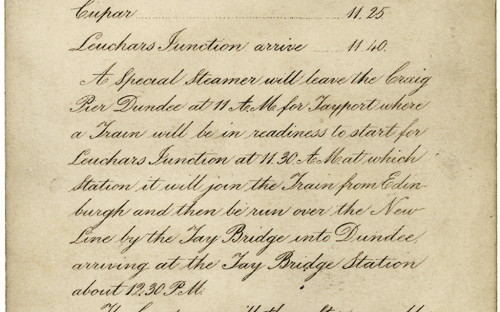 Cupar 11.25
Leuchars Junction arrive 11.40.
A Special Steamer will leave the Craig
Pier Dundee at 11 A.M. for Tayport where
a Train will be in readiness to start for
Leuchars Junction at 11.30 A.M. at which
Station it will join the Train from Edin-
burgh and then be run over the New
Line by the Tay Bridge into Dundee,
arriving at the Tay Bridge Station
about 12.30 P.M.